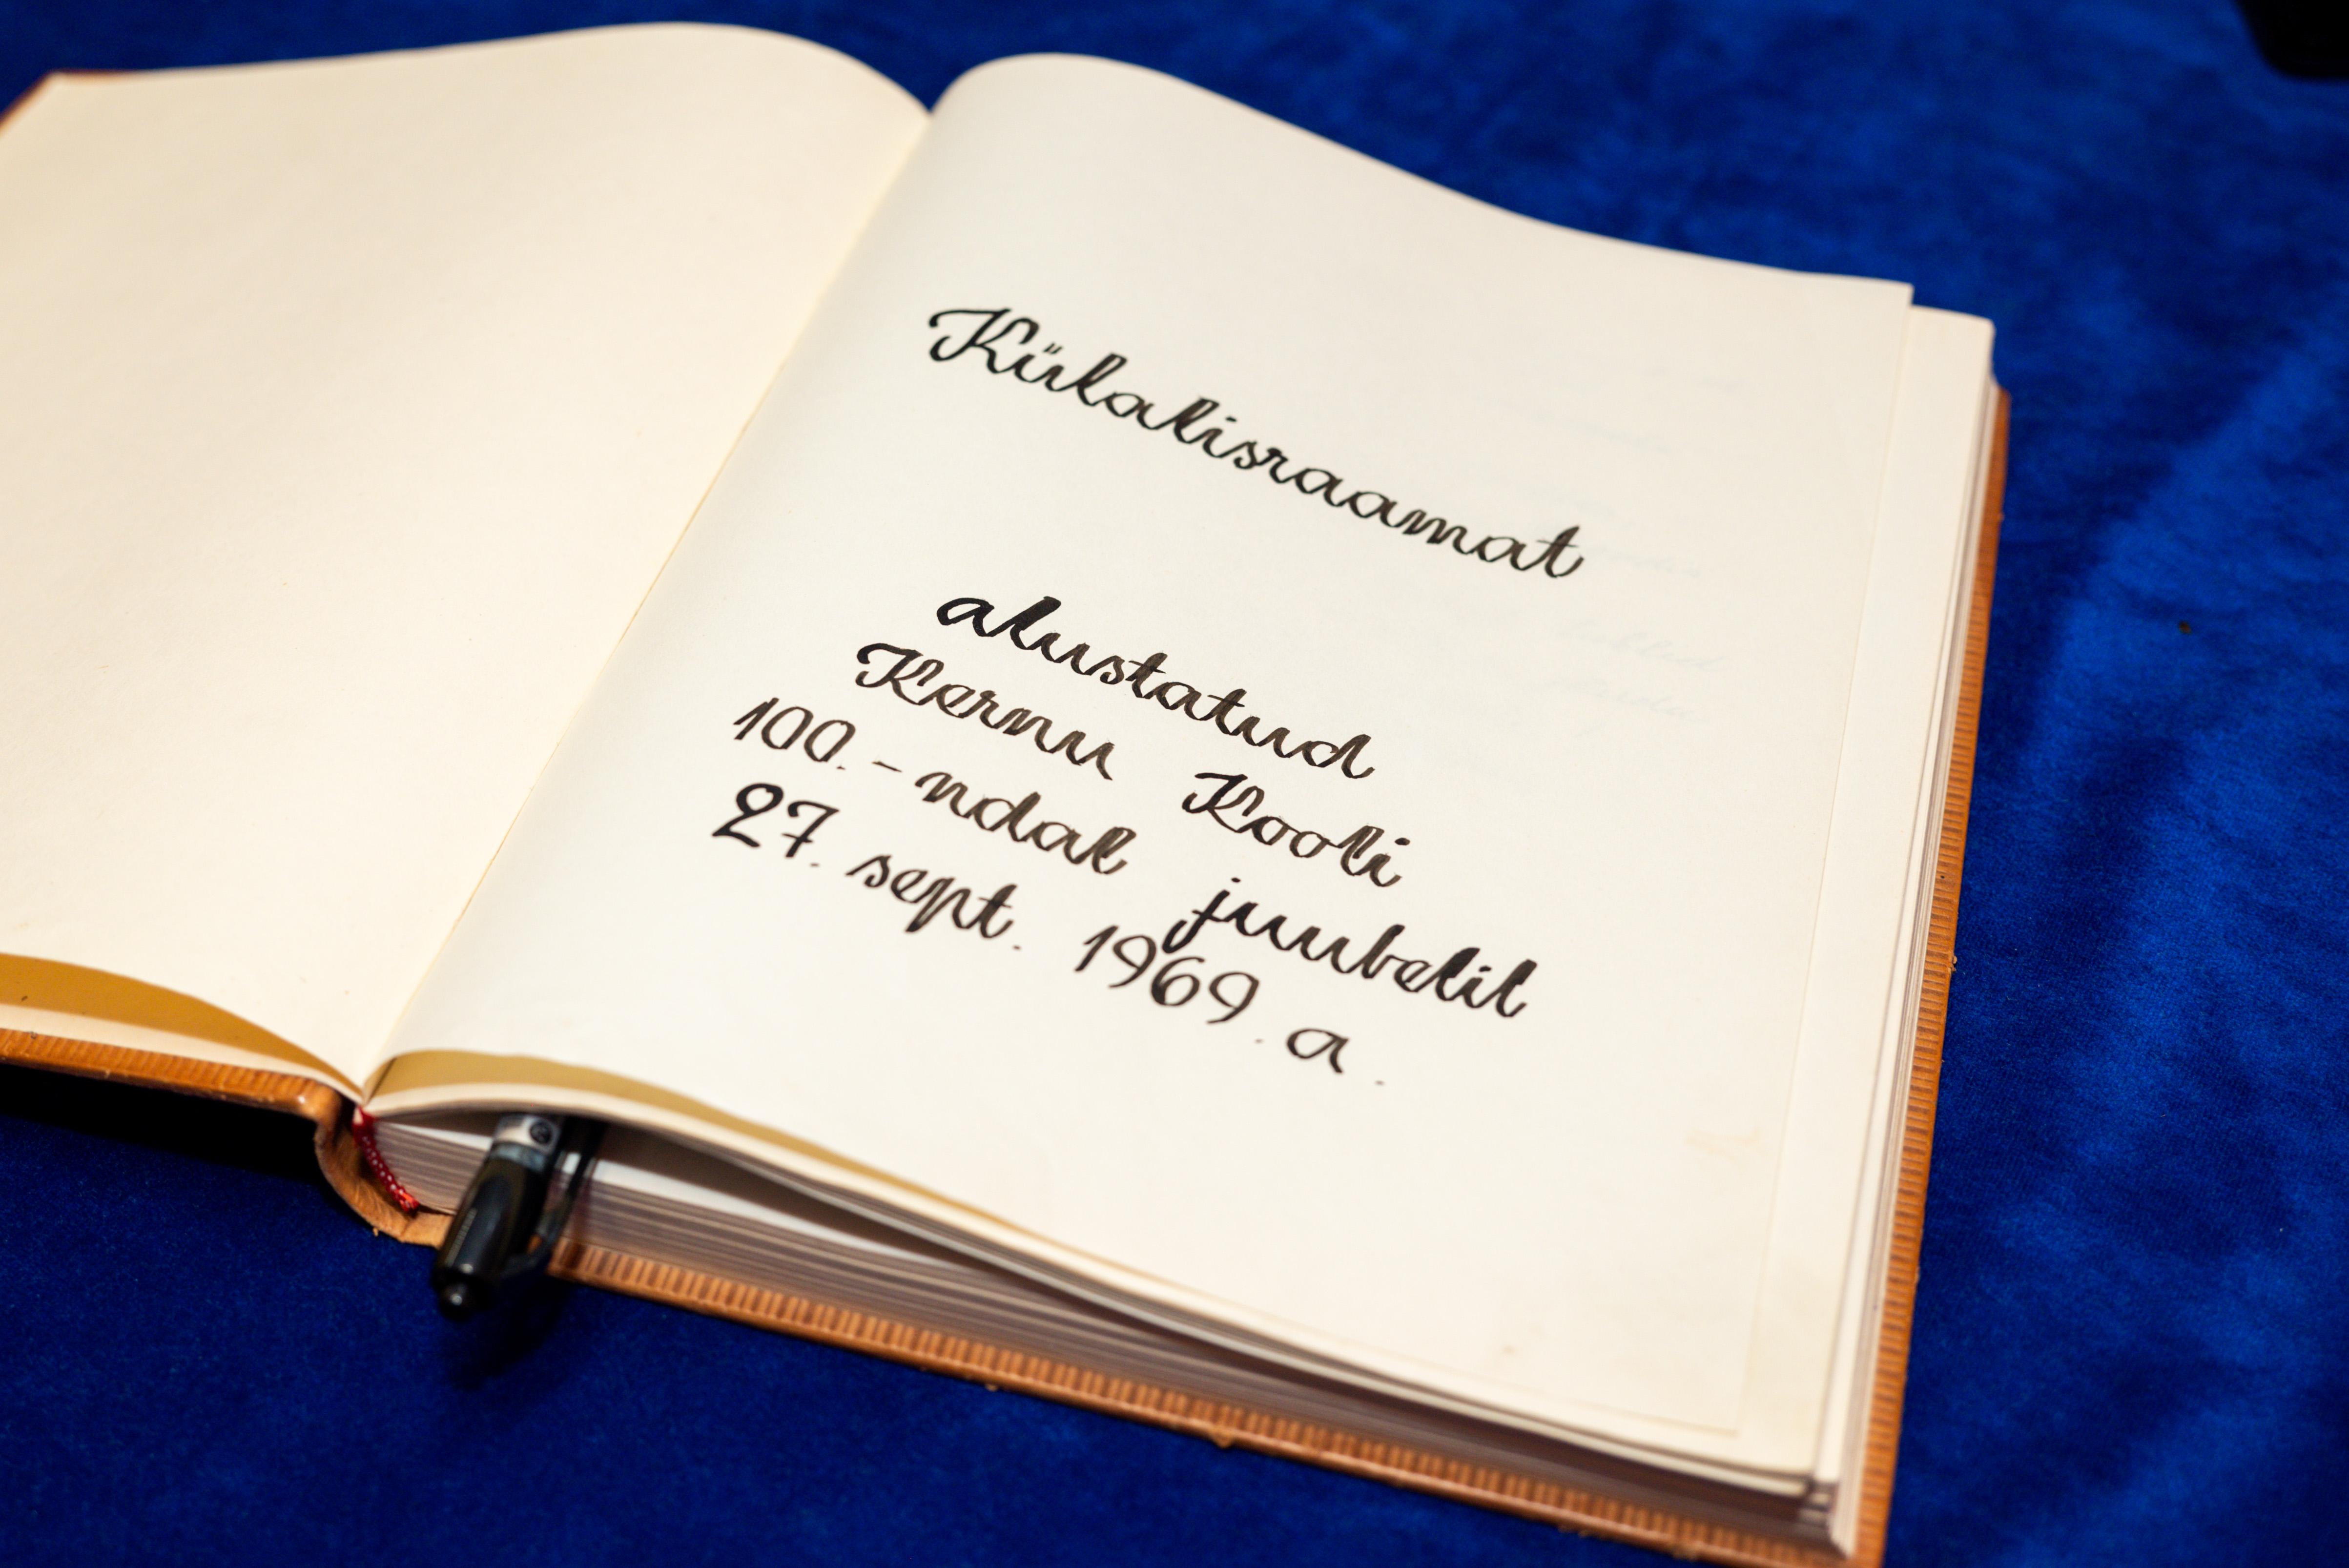 Külalisraamat
alustatud
Kernu Kooli
100.-ndal juubelil
27. sept. 1969. a.